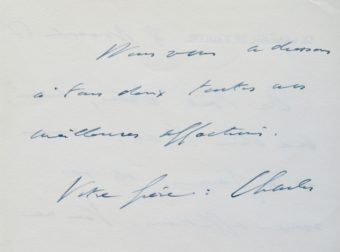 Nous vous adressons
à tous deux toutes nos
meilleures affections.
Votre frère : Charles